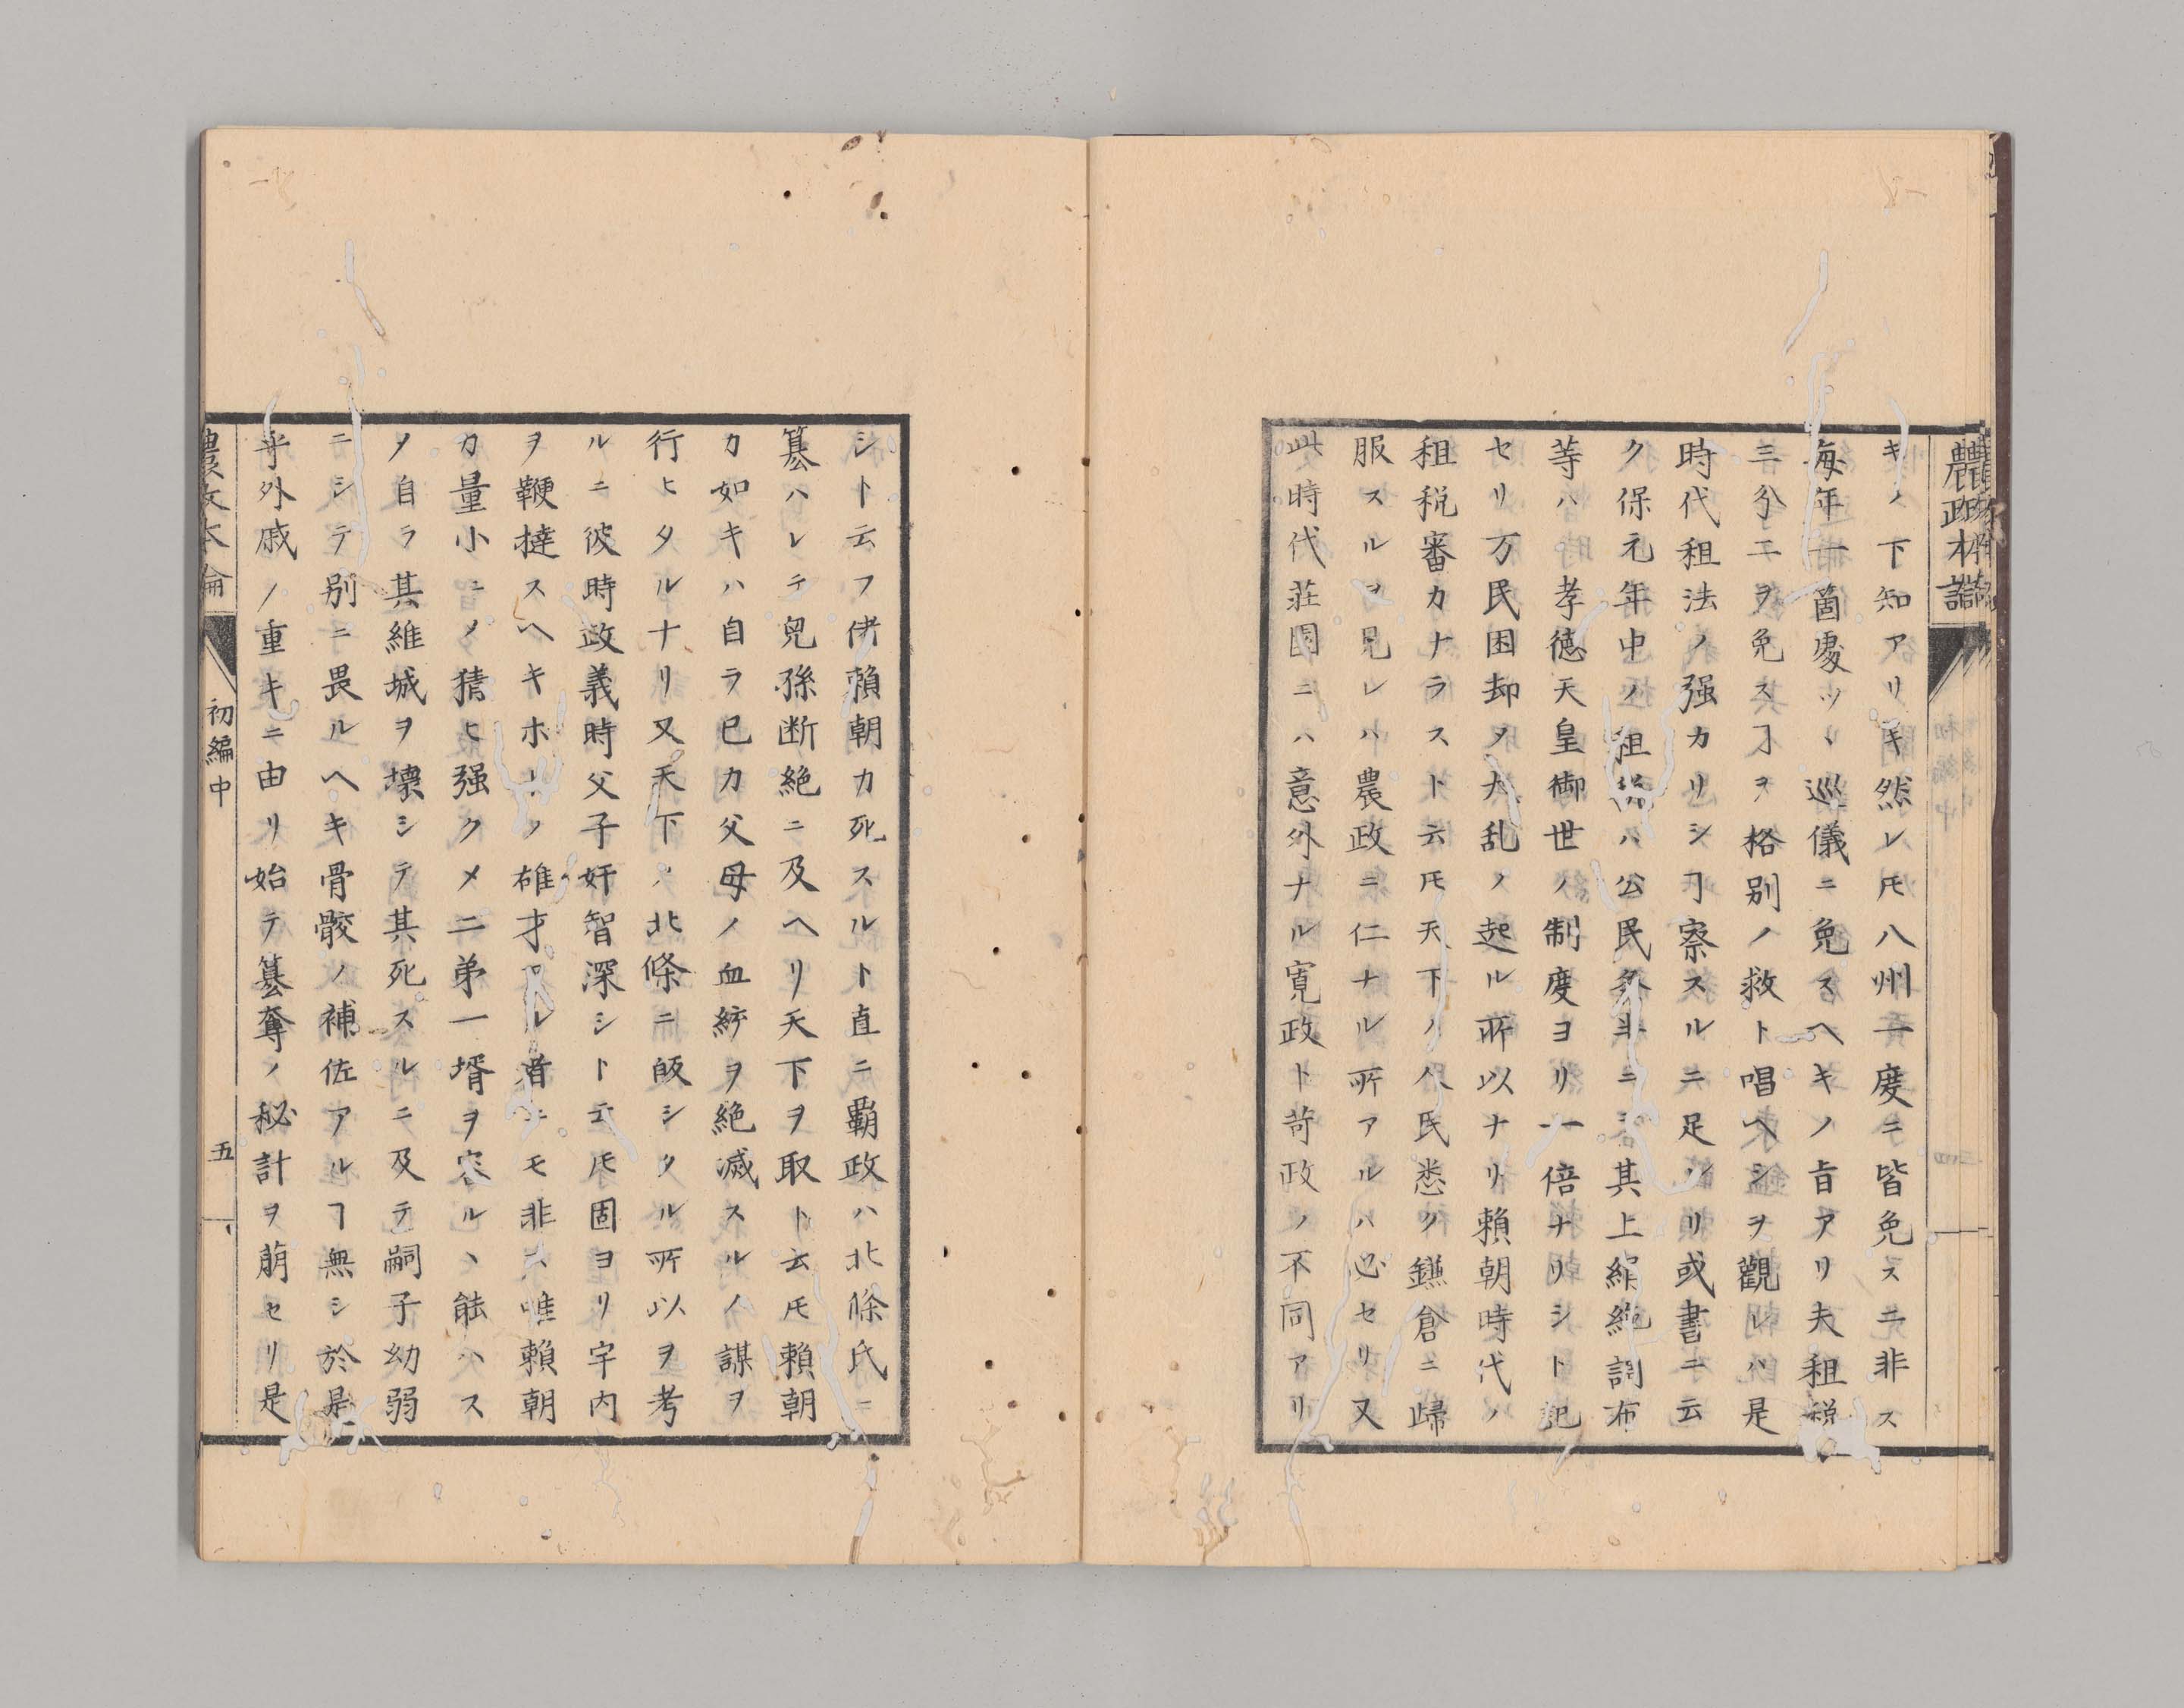 農政本論
キノ下知アリキ然レ𪜈八州一度ニ皆免スニ非ス
毎年一箇處ツヽ巡儀ニ免スヘキノ旨アリ夫租税
三分二ヲ免スヿヲ格別ノ救ト唱ヘシヲ觀レハ是
時代租法ノ强カリシヿ察スルニ足レリ或書ニ云
ク保元年中ノ租ハ公民ニ其上絹絁調布
等ハ孝徳天皇御世ノ制度ヨリ一倍ナリシト記
セリ万民困却ヲ大乱ノ起ル所以ナリ賴朝時代ノ
租税審カナラスト云𪜈天下ノ人民悉ク鎌倉ニ歸
服スルヲ見レハ農政ニ仁ナル所アルハ必セリ又
此時代莊園ニハ意外ナル寛政ト苛政ノ不同アリ
シト云フ伊賴朝カ死スルト直ニ覇政ハ北條氏ニ
簒ハレテ兒孫断絶ニ及ヘリ天下ヲ取ト云𪜈賴朝
カ如キハ自ラ已カ父母ノ血䋤ヲ絶滅スルノ謀ヲ
行ヒタルナリ又天下ノ北條ニ皈シタル所以ヲ考
ルニ彼時政義時父子奸智深シト云𪜈固ヨリ宇内
ヲ鞭撻スヘキホトノ雄才アル者ニモ非ス唯賴朝
カ量小ニノ猜ヒ强クメ二弟一壻ヲ容ルヽ能ハス
ノ自ラ其維城ヲ壊シテ其死スルニ及テ嗣子幼弱
ニシテ別ニ畏ルヘキ骨骾ノ補佐アルヿ無シ於是
乎外戚ノ重キニ由リ始テ簒奪ノ秘計ヲ萠セリ是
農政本論
初編中
五